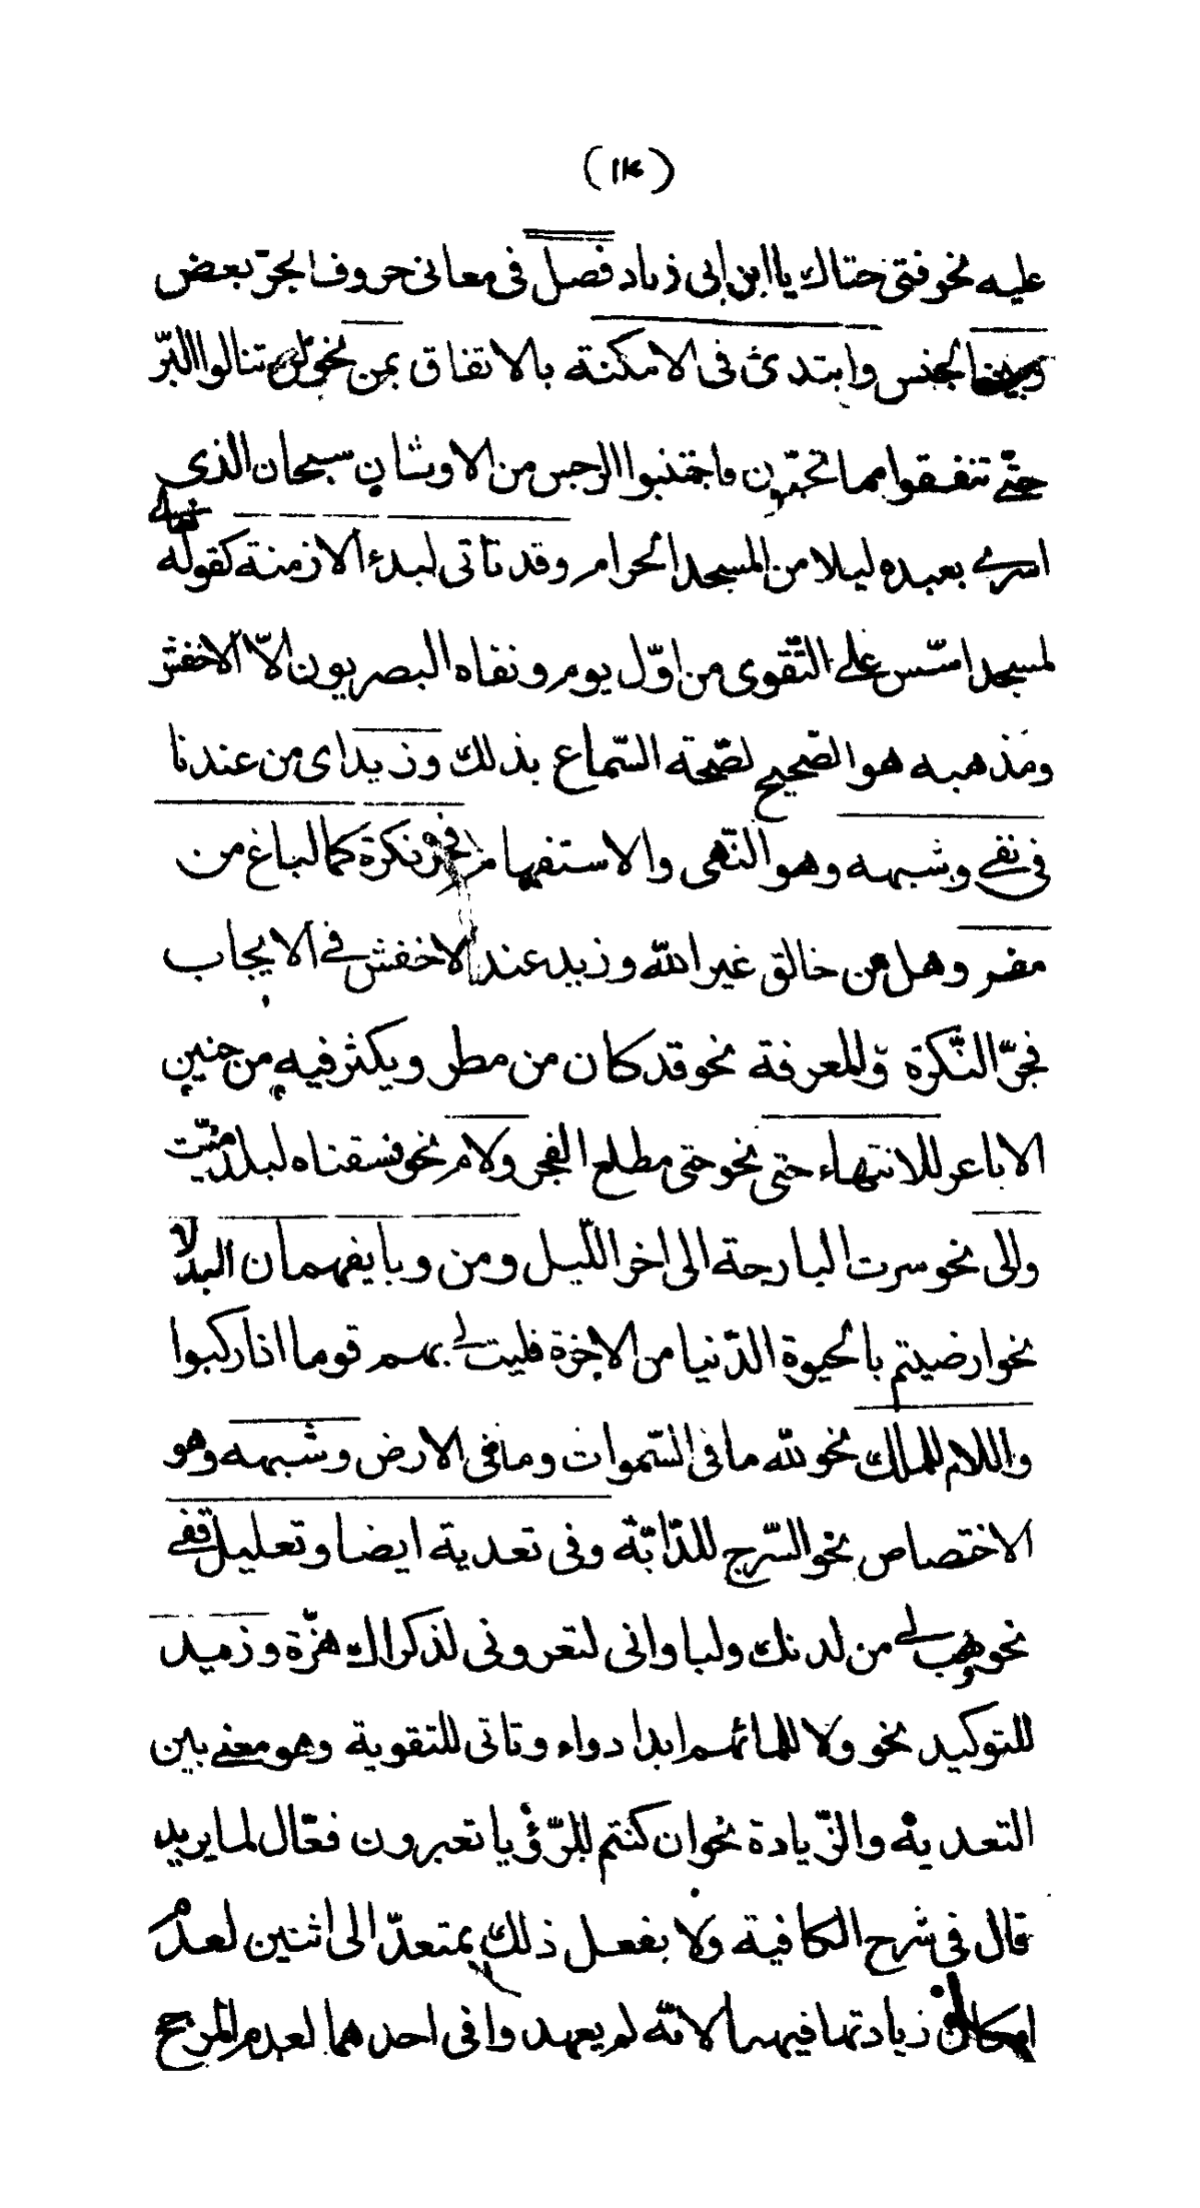 (١١٤)
عليه نحو فتى حتاك يا ابن ابى زياد فصل فى معانى حروف الجرّ بعض
وبين الجنس وابتدئ فى الامكنة بالاتفاق بمن نحو لن تنالوا البّر
حتّى تنفقوا مما تحبّون فاجتنبوا الرجس من الاوثان سبحان الذى
اسرى بعبده ليلا من المسجد الحرام وقد تاتى لبدء الازمنة كقوله تعالى
لمسجد اسّس على التّقوى من اوّل يوم ونفاه البصريون الاّ الاخفش
ومذهبه هو الصّحيح لصّحة السّماع بذلك وزيد اى من عندنا
فى نفى وشبهه وهو النّهى والاستفهام فجر نكرة كما لباغ من
مفر وهل من خالق غير الله وزيد عند الاخفش فى الايجاب
فجرّ النّكرة والمعرفة نحو قد كان من مطر ويكثر فيه من حنين
الاباعر للانتهاء حتى نحو حتى مطلع الفجر ولام نحو فسقناه لبلد ميّت
والى نحو سرت البارحة الى اخر اللّيل ومن وبا يفهمان البدلا
نحو ارضيتم بالحيوة الدّنيا من الاخرة فليت لى بهم قوما اذا ركبوا
واللام للملك نحو لله ما فى السّموات وما فى الارض وشبهه وهو
الاختصاص نحو السّرج للدّابّة وفى تعدية ايضا وتعليل قفى
نحو فهب لى من لدنك وليا وانى لتعرونى لذكراك هزّة وزيد
للتوكيد نحو ولا للما بهم ابدا دواء وتاتى للتقوية وهو معنى بين
التعدية والزّيادة نحو ان كنتم للرّؤيا تعبرون فعّال لما يريد
قال فى شرح الكافية ولا يفعل ذلك بمتعدّ الى اثنين لعدم
امكان زيادتها فيهما لانّه لم يعهد وا فى احدهما لعدم المرجح